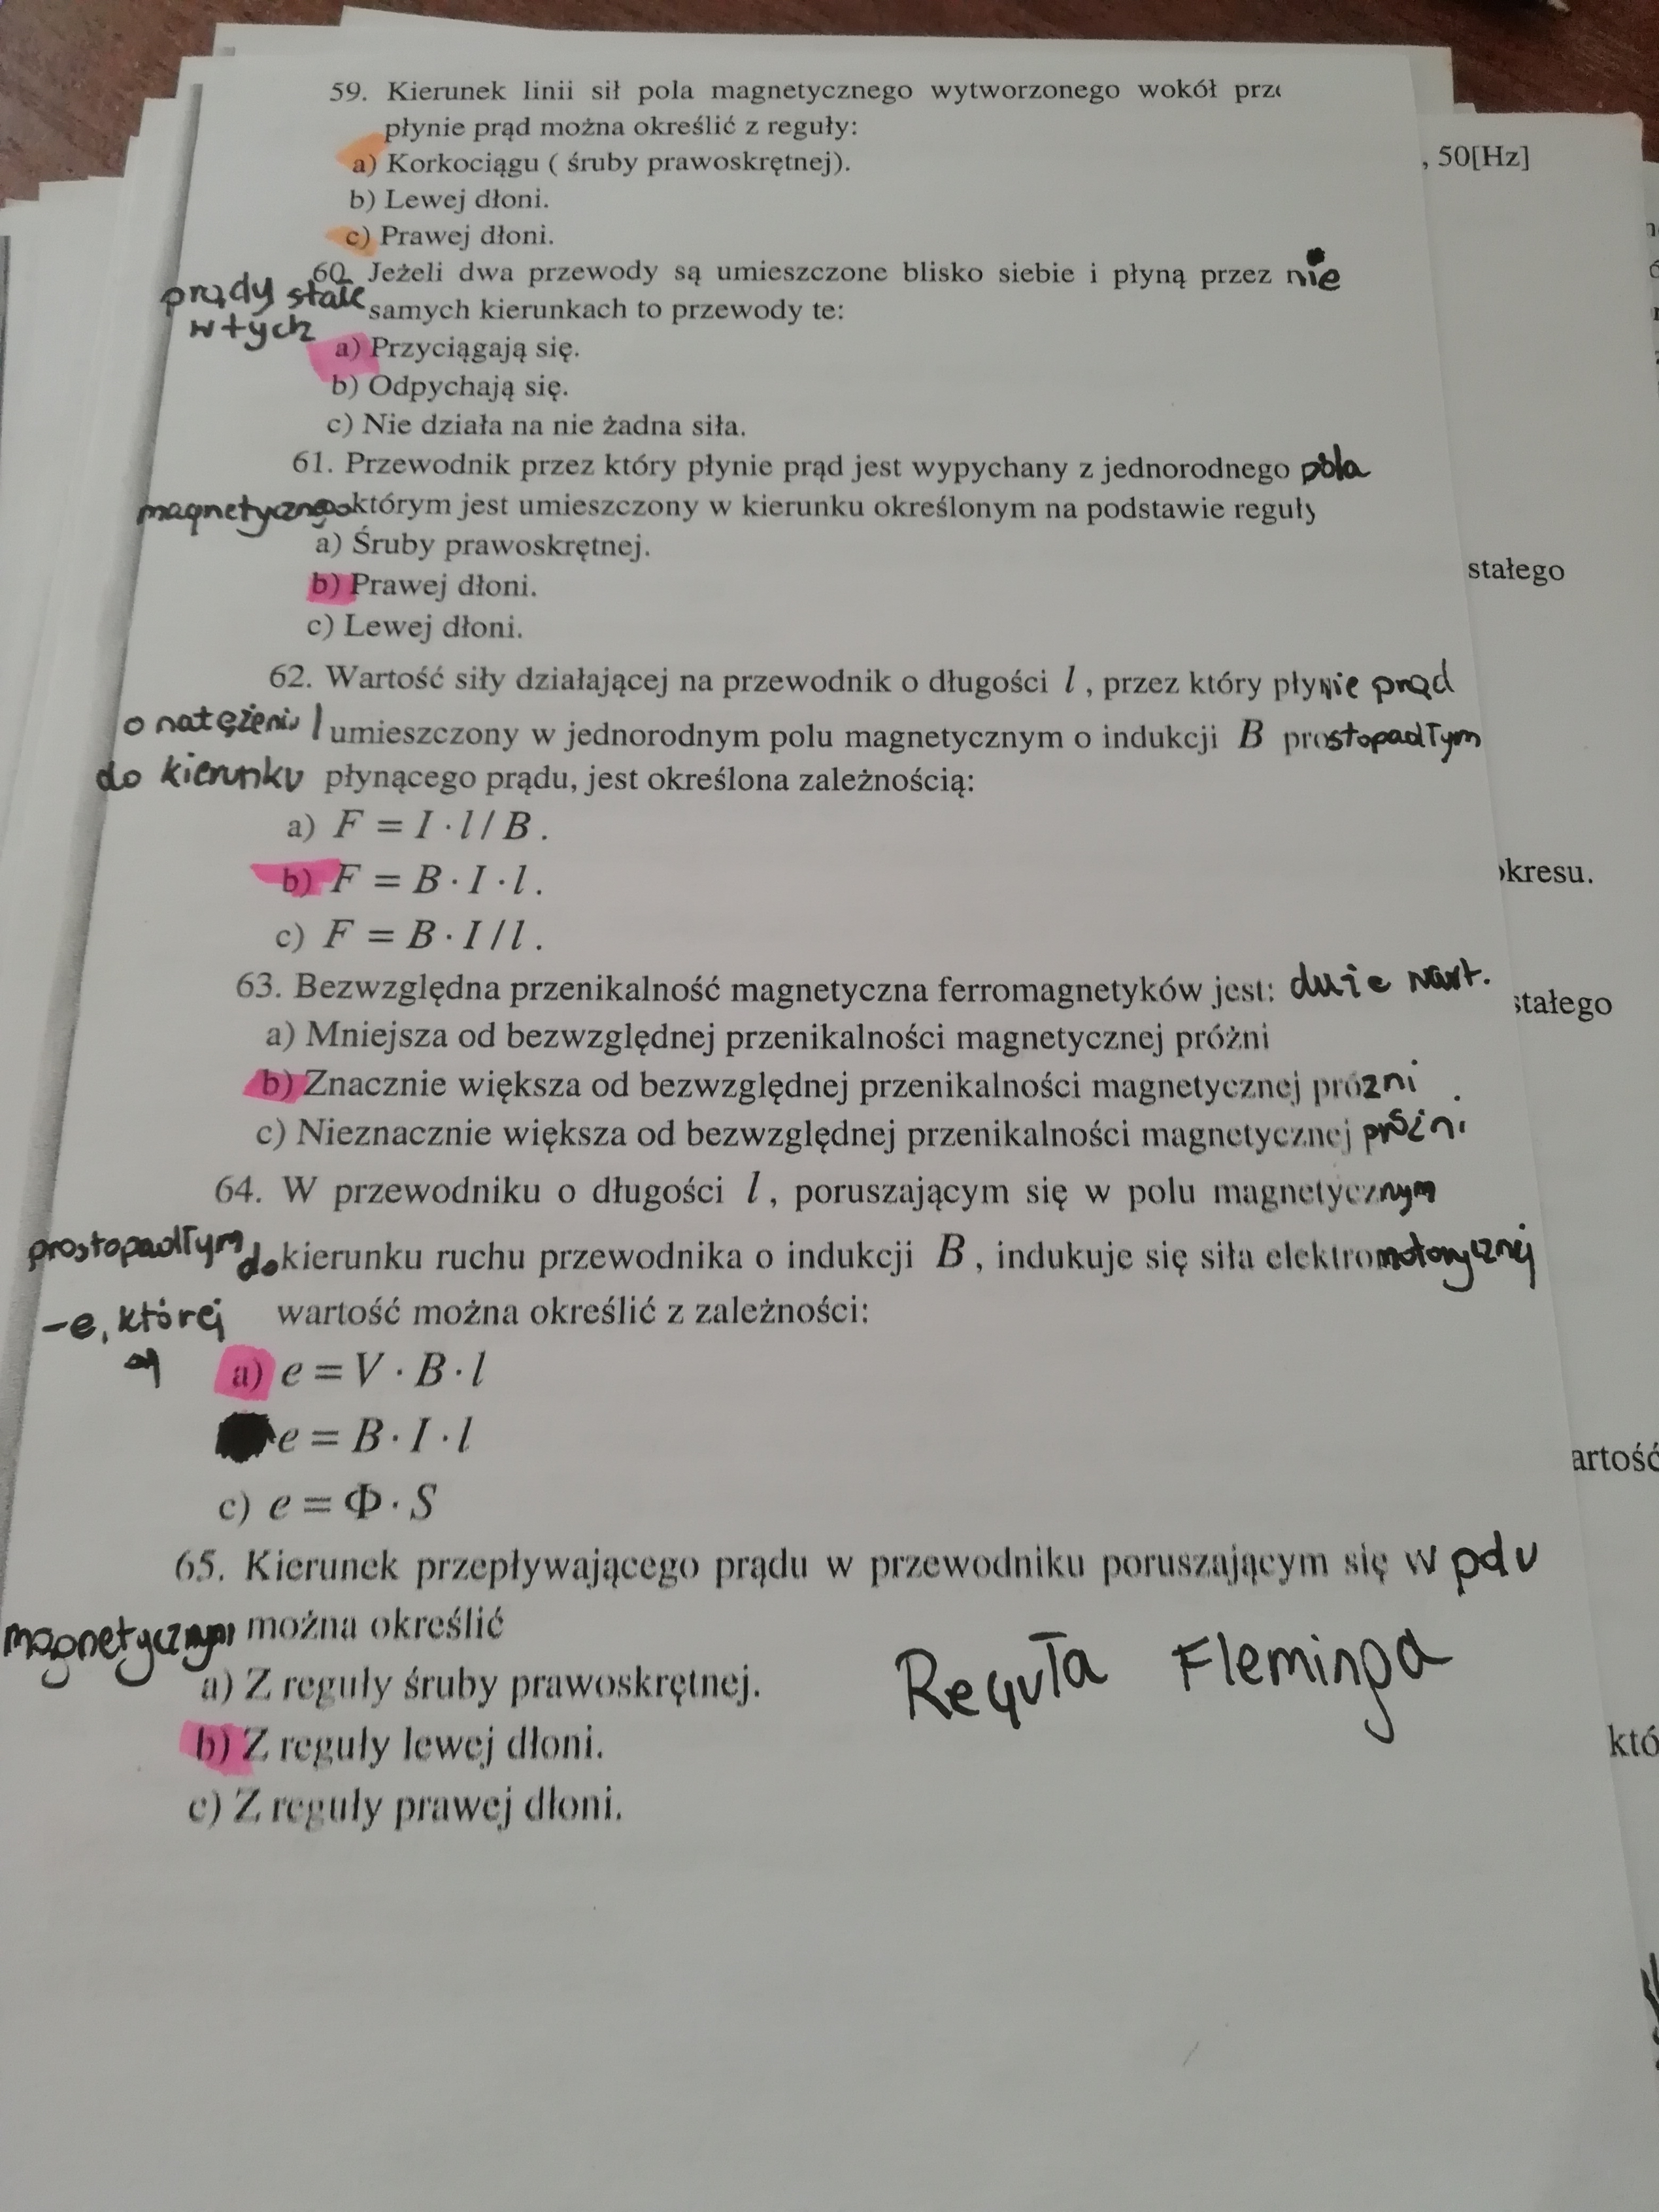 59. Kierunek linii sił pola magnetycznego wytworzonego wokół
płynie prąd można określić z reguły:
a) Korkociągu ( śruby prawoskrętnej).
, 50[Hz]
b) Lewej dłoni.
c) Prawej dłoni.
60. Jeżeli dwa przewody są umieszczone blisko siebie i płyną przez nie
prądy stałe samych kierunkach to przewody te:
w tych
a) Przyciągają się.
b) Odpychają się.
c) Nie działa na nie żadna siła.
61. Przewodnik przez który płynie prąd jest wypychany z jednorodnego pola
magnetycznego którym jest umieszczony w kierunku określonym na podstawie reguły
a) Śruby prawoskrętnej.
b) Prawej dłoni.
stałego
c) Lewej dłoni.
62. Wartość siły działającej na przewodnik o długości l , przez który płynie prąd
o natężeniu I umieszczony w jednorodnym polu magnetycznym o indukcji B prostopadłym
do kierunku płynącego prądu, jest określona zależnością:
a) F = I · l / B .
b) F = B · I · l .
okresu.
c) F = B · I / l .
63. Bezwzględna przenikalność magnetyczna ferromagnetyków jest:
stałego
a) Mniejsza od bezwzględnej przenikalności magnetycznej próżni
b) Znacznie większa od bezwzględnej przenikalności magnetycznej prózni
c) Nieznacznie większa od bezwzględnej przenikalności magnetycznej próżni
64. W przewodniku o długości l , poruszającym się w polu magnetycznym
prostopadłym do kierunku ruchu przewodnika o indukcji B , indukuje się siła elektromotorycznej
-e, której wartość można określić z zależności:
a) e = V · B · l
e = B · I · l
artość
c) e = Φ · S
65. Kierunek przepływającego prądu w przewodniku poruszającym się w polu
magnetycznym można określić
a) Z reguły śruby prawoskrętnej.
Reguła Fleminga
b) Z reguły lewej dłoni.
któ
c) Z reguły prawej dłoni.